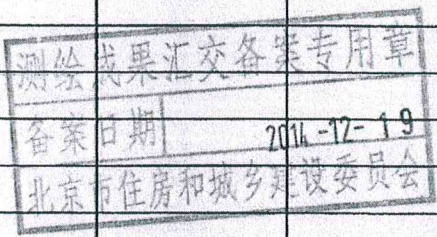 测绘成果汇交备案专用章
备案日期 2014-12-19
北京市住房和城乡建设委员会